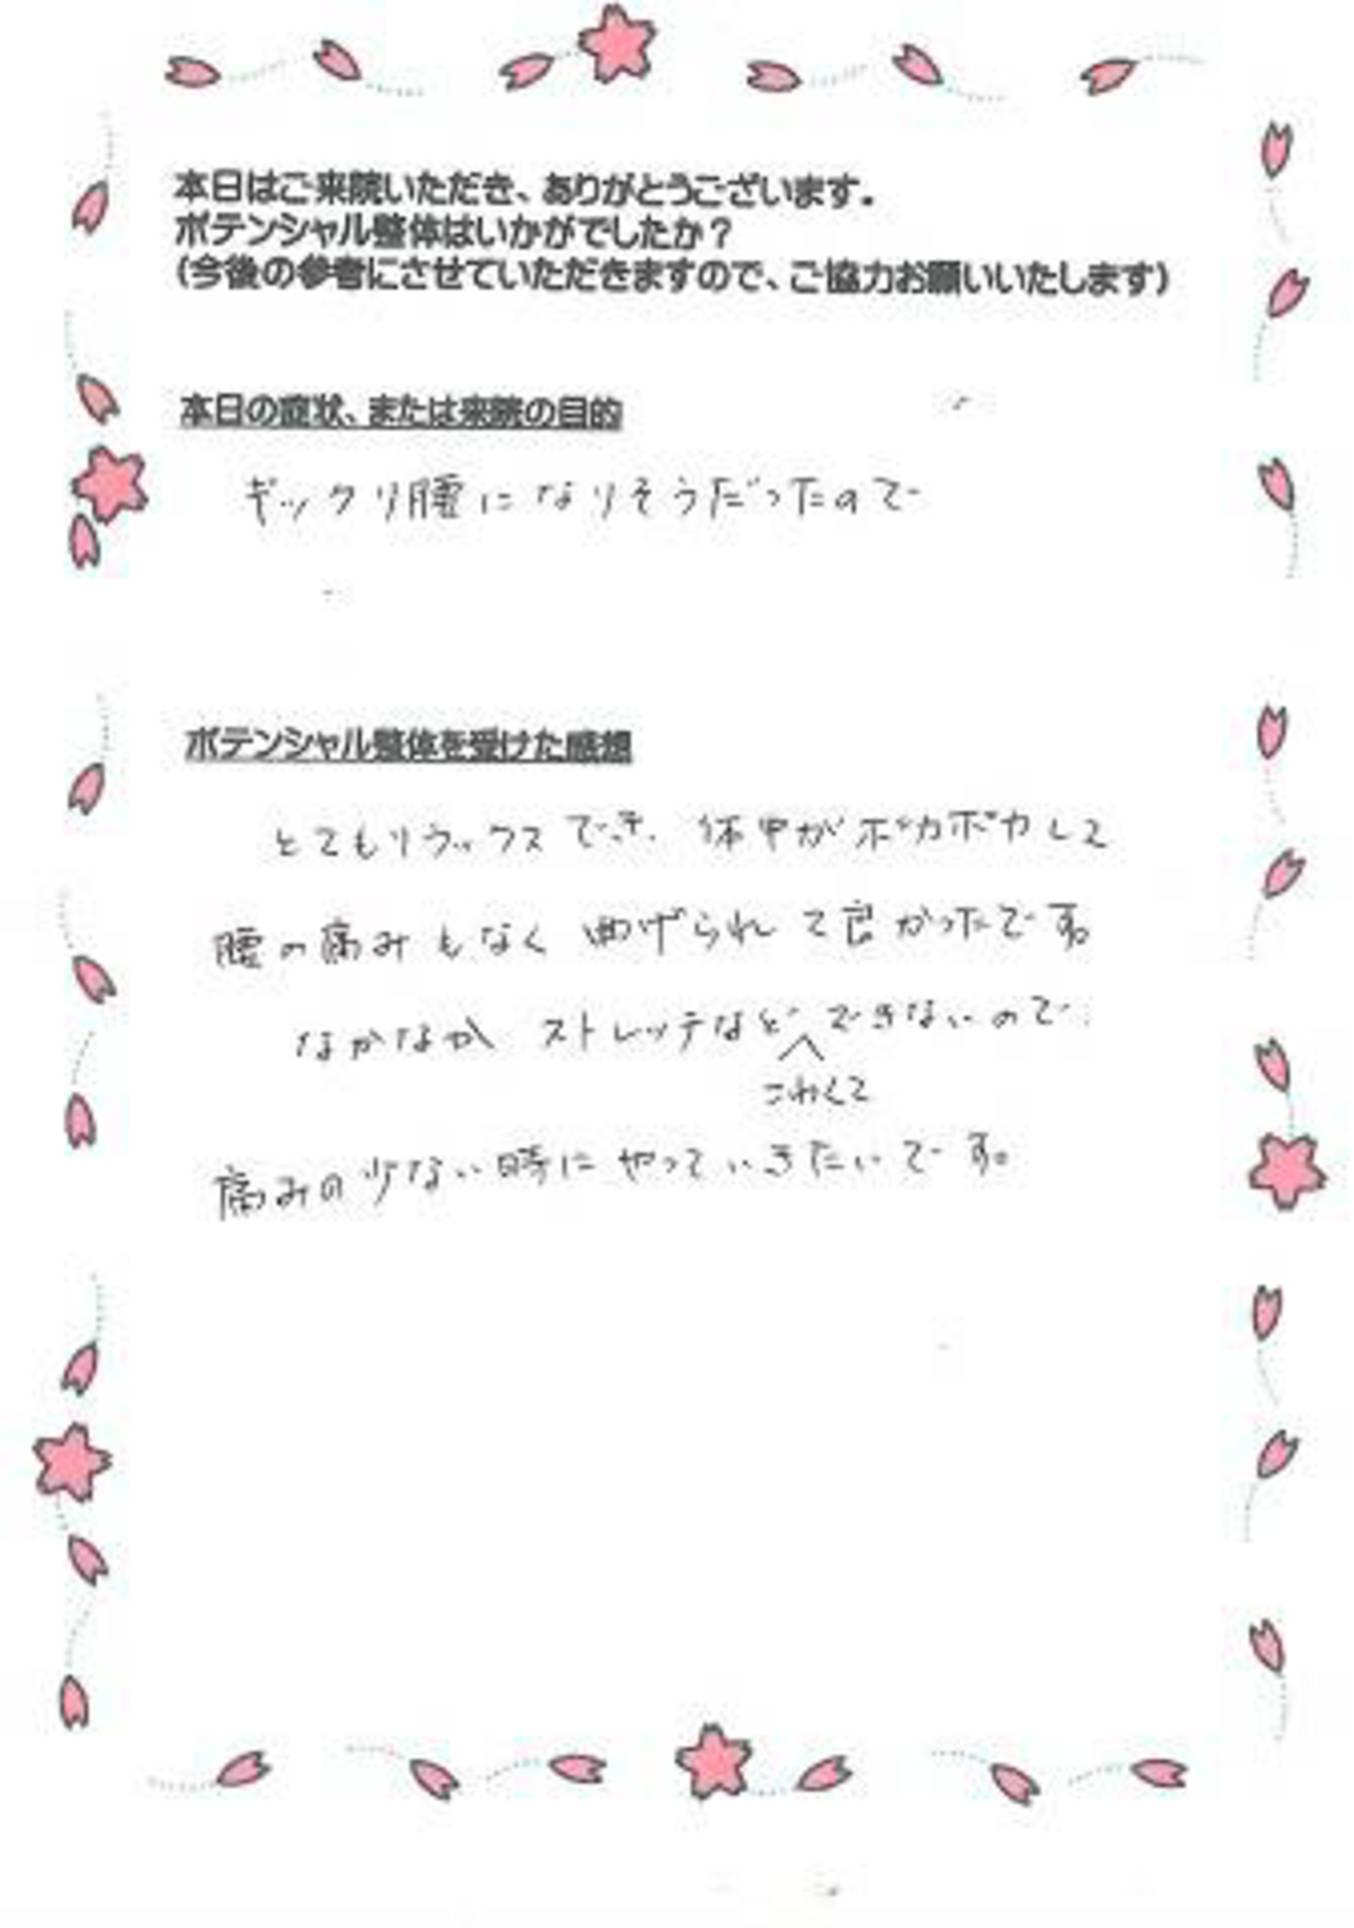 本日はご来院いただき、ありがとうございます。
ポテンシャル整体はいかがでしたか？
（今後の参考にさせていただきますので、ご協力お願いいたします）
本日の症状、または来院の目的
ギックリ腰になりそうだったので
ポテンシャル整体を受けた感想
とてもリラックスでき、体中がポカポカして
腰の痛みもなく曲げられて良かったです。
なかなかストレッチなどできないので
こわくて
痛みの少ない時にやっていきたいです。